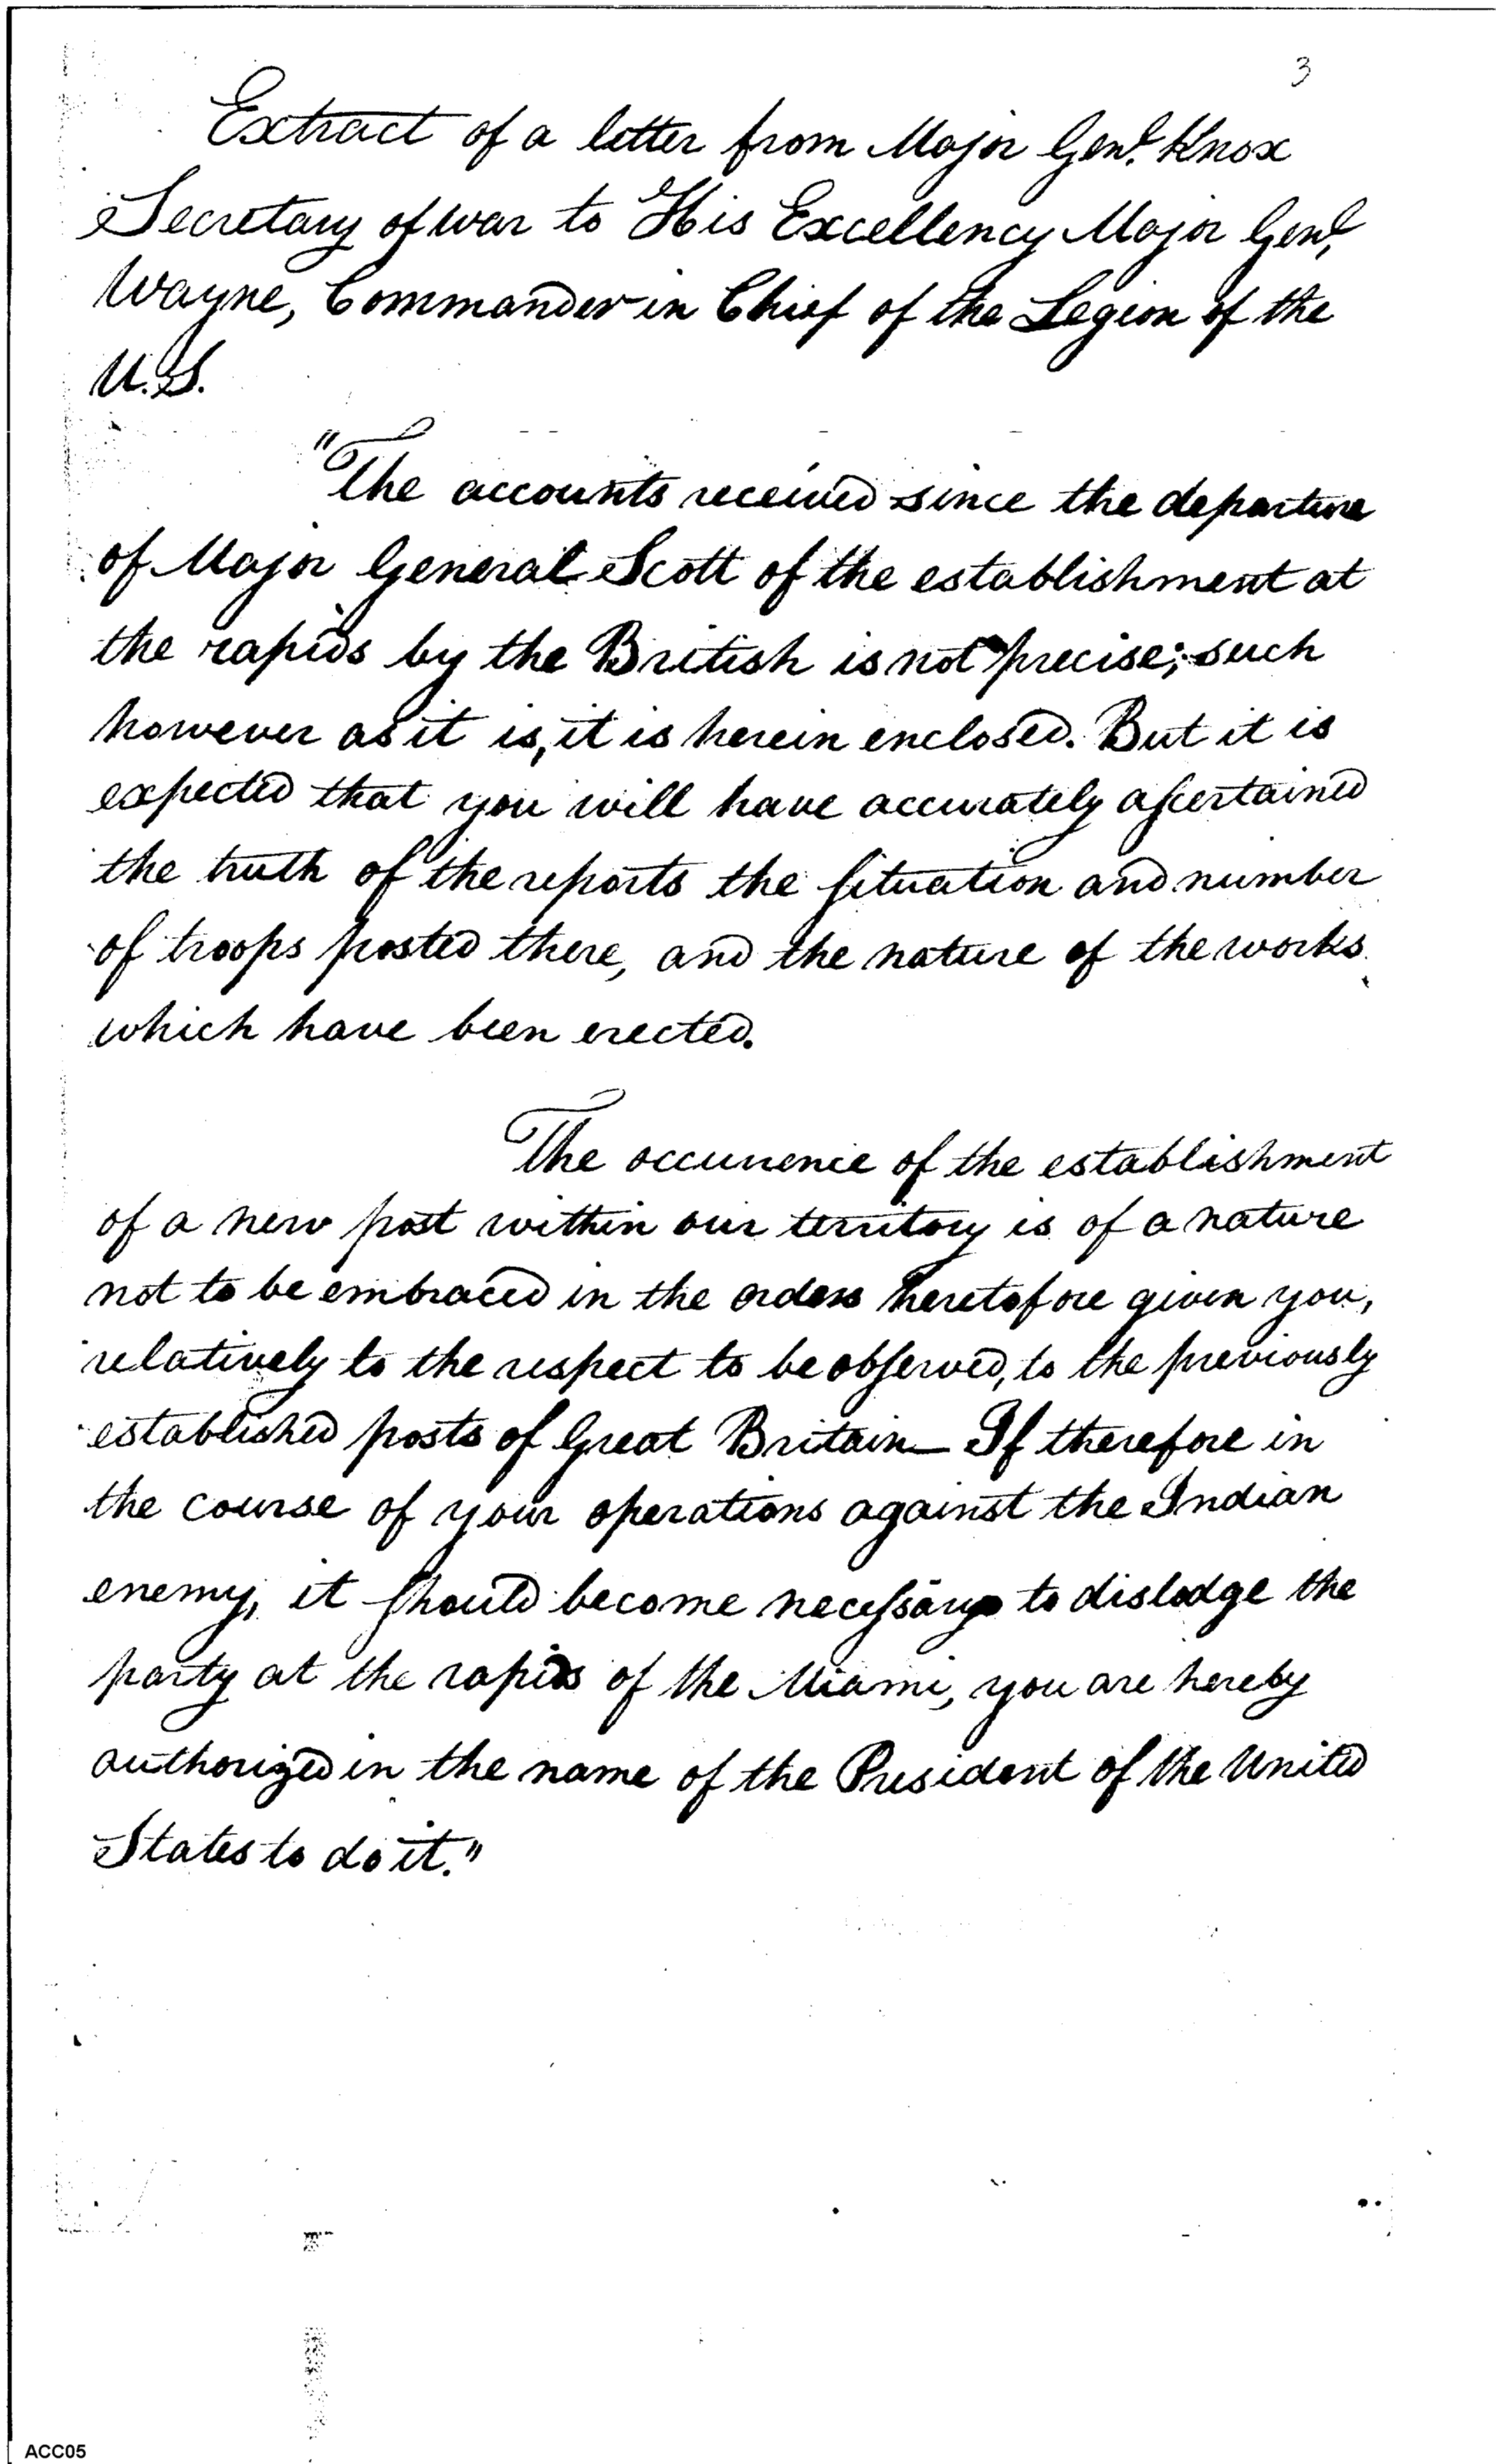 3
Extract of a letter from Major Genl. Knox
Secretary of war to His Excellency Major Genl,
Wayne, Commander in Chief of the Legion of the
U.S.
"The accounts received since the departure
of Major General Scott of the establishment at
the rapids by the British is not precise; such
however as it is, it is herein enclosed. But it is
expected that you will have accurately aſcertained
the truth of the reports the ſituation and number
of troops posted there, and the nature of the works
which have been erected.
The occurrence of the establishment
of a new post within our territory is of a nature
not to be embraced in the orders heretofore given you,
relatively to the respect to be obſerved, to the previously
established posts of Great Britain— If therefore in
the course of your operations against the Indian
enemy, it ſhould become neceſsary to dislodge the
party at the rapids of the Miami, you are hereby
authorized in the name of the President of the United
States to do it."
ACC05